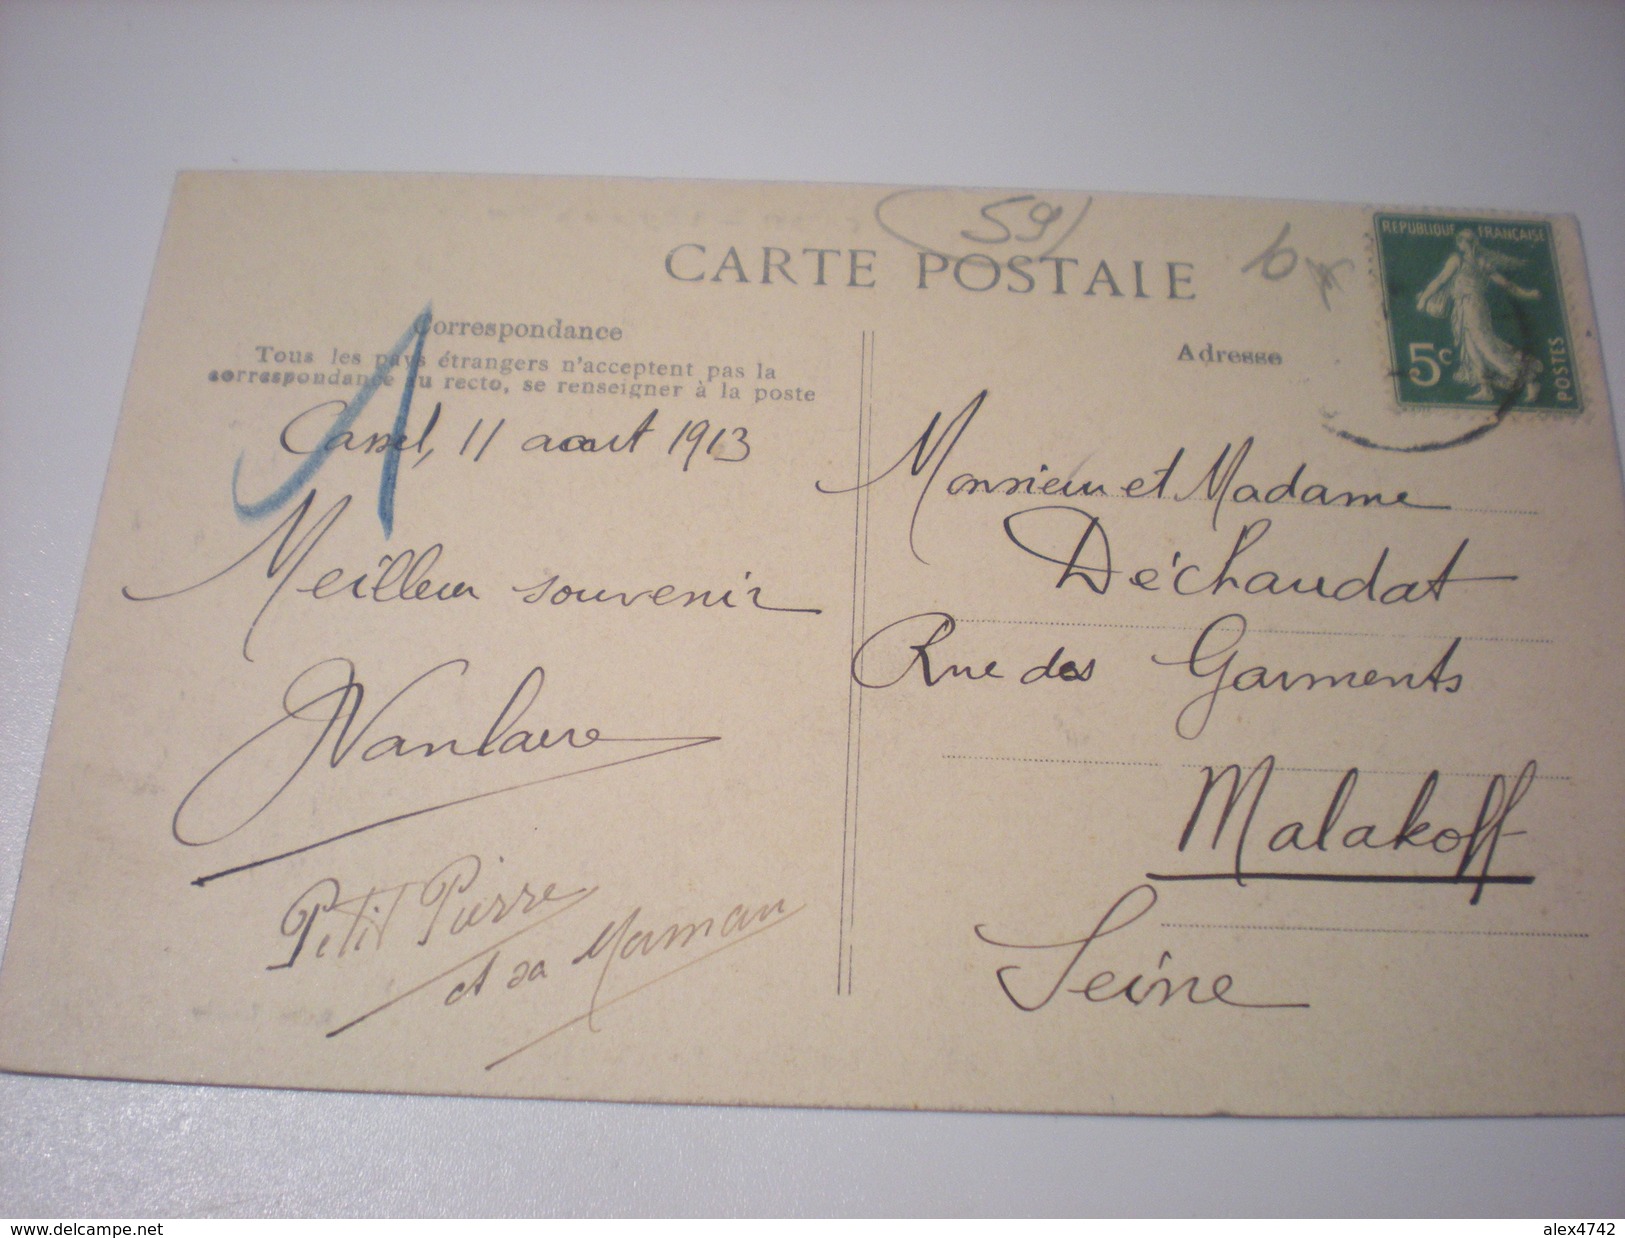 CARTE POSTALE
59
REPUBLIQUE FRANÇAISE
5c
POSTES
Correspondance
Tous les pays étrangers n'acceptent pas la
correspondance au recto, se renseigner à la poste
Adresse
Cassel, 11 aout 1913
Meilleur souvenir
Vanlaere
Petit Pierre
et sa Maman
Monsieur et Madame
Déchaudat
Rue des Garments
Malakoff
Seine
www.delcampe.net
alex4742